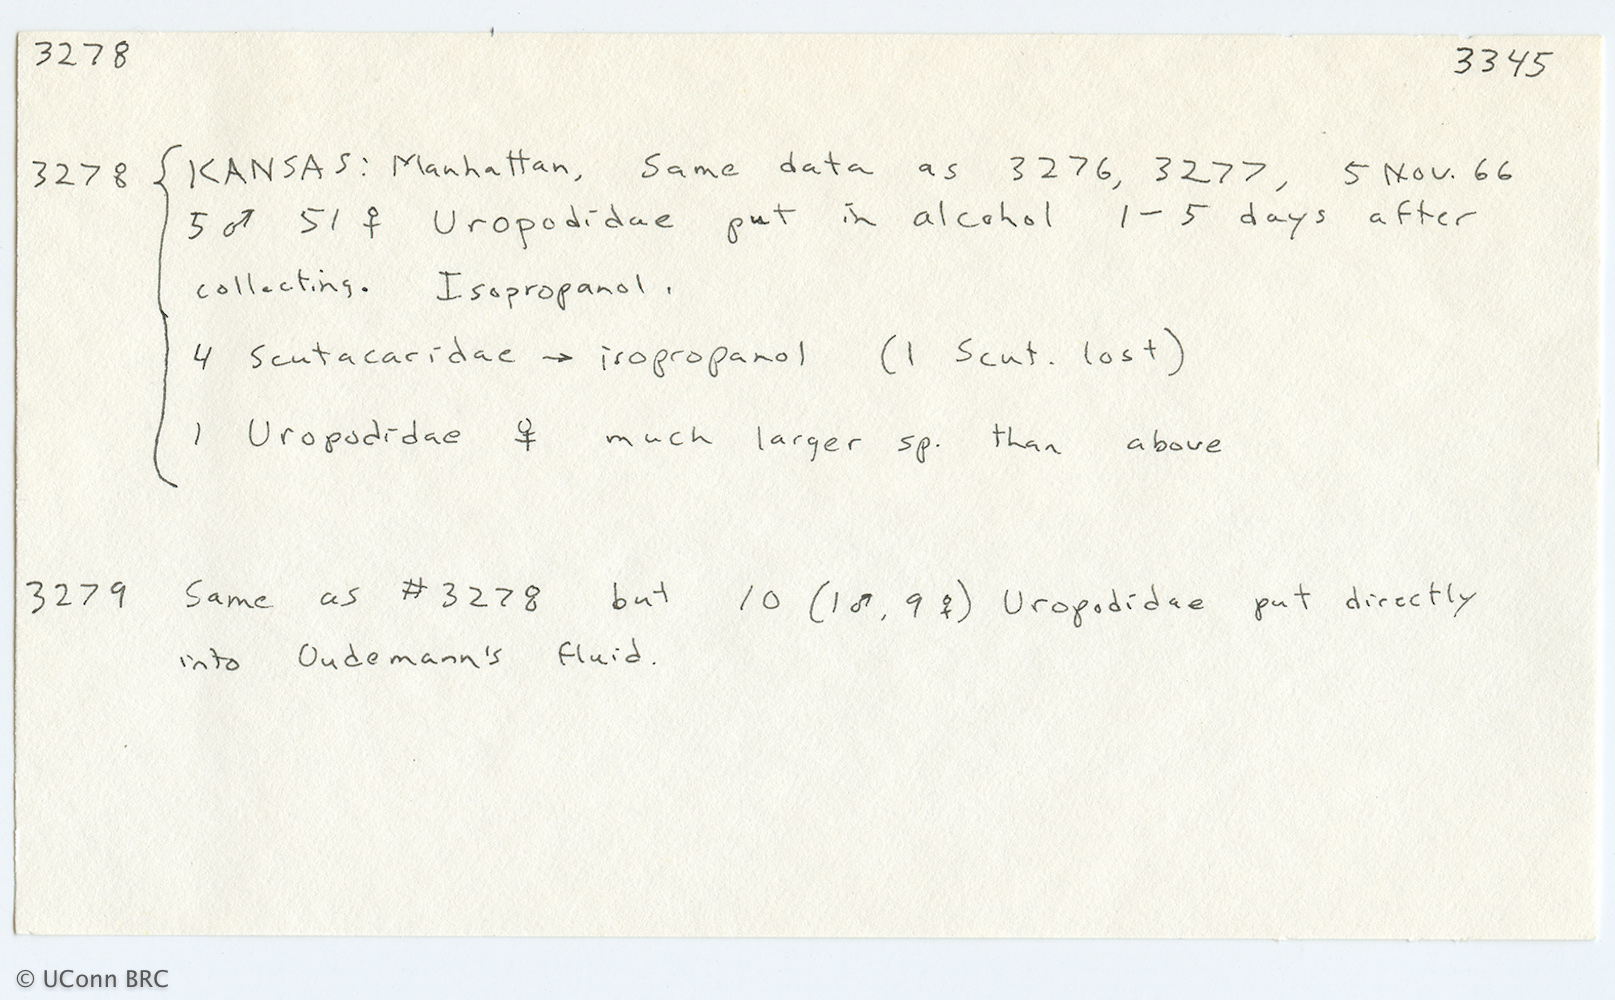 3278 3345
3278 { KANSAS: Manhattan, Same data as 3276, 3277, 5 Nov. 66
5 ♂ 51 ♀ Uropodidae put in alcohol 1-5 days after
collecting. Isopropanol.
4 Scutacaridae → isopropanol (1 Scut. lost)
1 Uropodidae ♀ much larger sp. than above
3279 Same as #3278 but 10 (1♂, 9♀) Uropodidae put directly
into Oudemann's fluid.
© UConn BRC